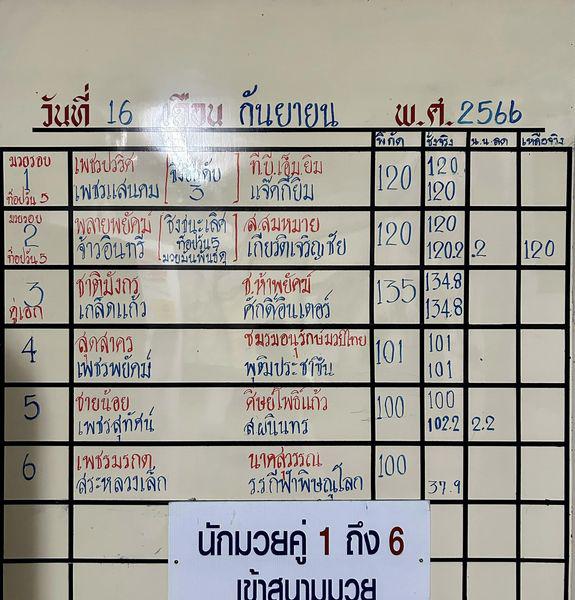 วันที่ 16 เดือน กันยายน พ.ศ. 2566
พิกัด ชั่งจริง น.น.ลด เหลือจริง
มวยรอบ 1 ท็อปวัน 5
เพชรปวริศ ที.บี.เอ็ม.ยิม 120
เพชรแสนคม แจ๊คกี้ยิม 120 120
ชิงอันดับ 3
มวยรอบ 2 ท็อปวัน 5
พลายพยัคฆ์ ส.สมหมาย 120
จ้าวอินทรี เกียรติเจริญชัย 120 120.2 .2 120
ชิงชนะเลิศ
ท็อปวัน 5
มวยมันพันธุ์ดุ
3 คู่เอก
ชาติมังกร ช.ห้าพยัคฆ์ 134.8
เกล็ดแก้ว ศักดิ์อินเตอร์ 135 134.8
4
สุดสาคร ชมรมอนุรักษ์มวยไทย 101
เพชรพยัคฆ์ พุฒิประชาชื่น 101 101
5
ชายน้อย ศิษย์โพธิ์แก้ว 100
เพชรสุทัศน์ ส.ผนินทร 100 102.2 2.2
6
เพชรมรกต นาคสุวรรณ 100
สระหลวงเล็ก ร.ร.กีฬาพิษณุโลก 37.9
นักมวยคู่ 1 ถึง 6
เข้าสนามมวย